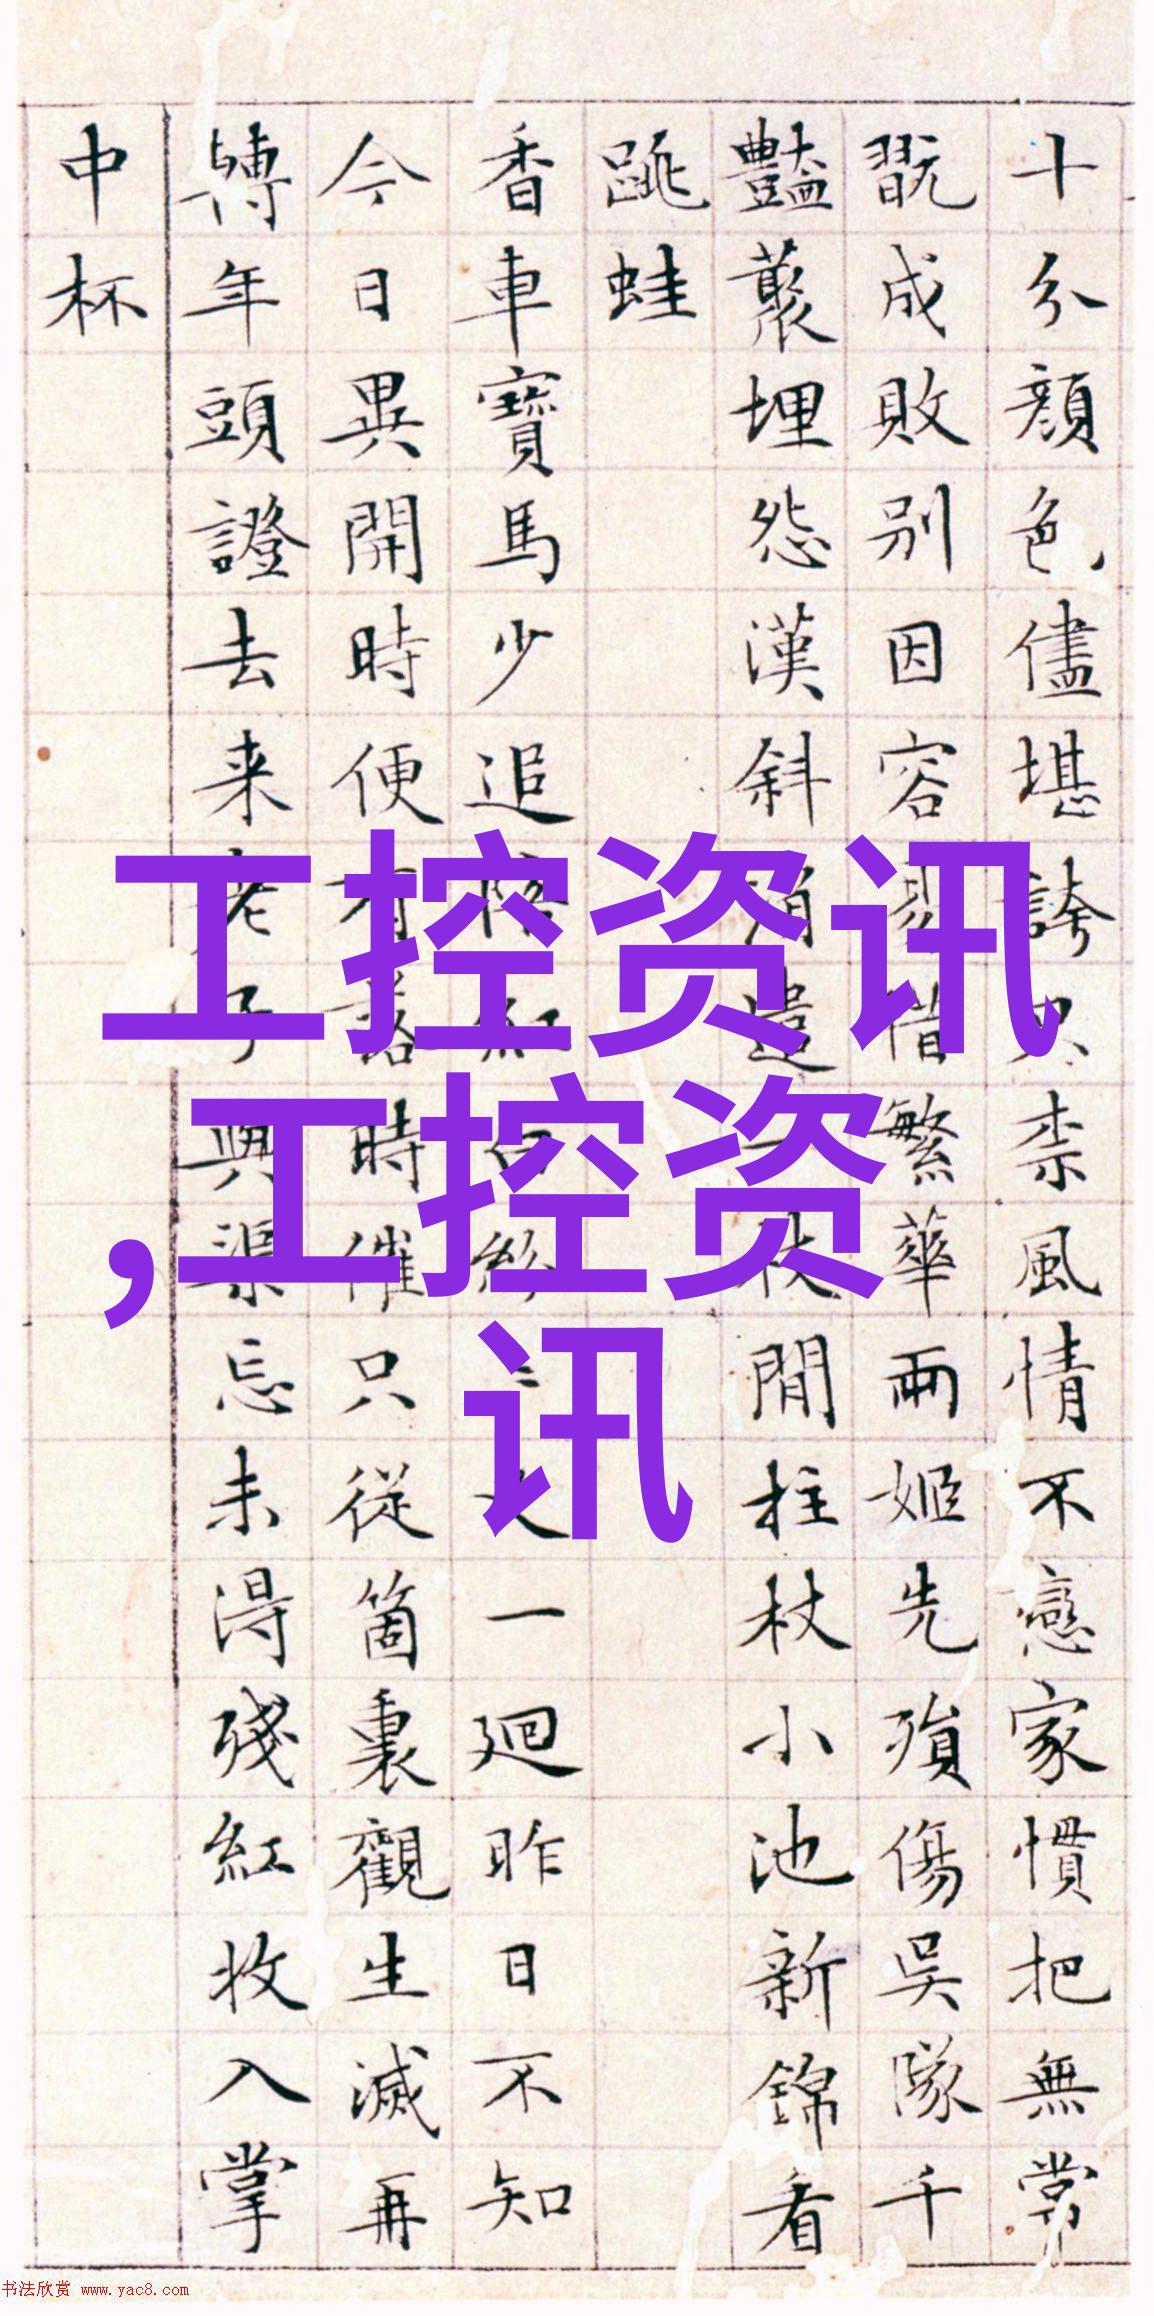 十分顔色儘堪誇只柰風情不戀家慣把無常
翫成敗別因容易惜繁華兩姬先殞傷吳隊千
豔藂埋怨漢斜消遣一枝閒拄杖小池新錦看
跳蛙
香車寶馬少追陪紅白紛又一廻昨日不知
今日異開時便有落時催只從箇裏觀生滅再
轉年頭證去来老子與渠忘未得殘紅收入掌
中杯
工控资讯
,工控资
讯
书法欣赏 www.yac8.com